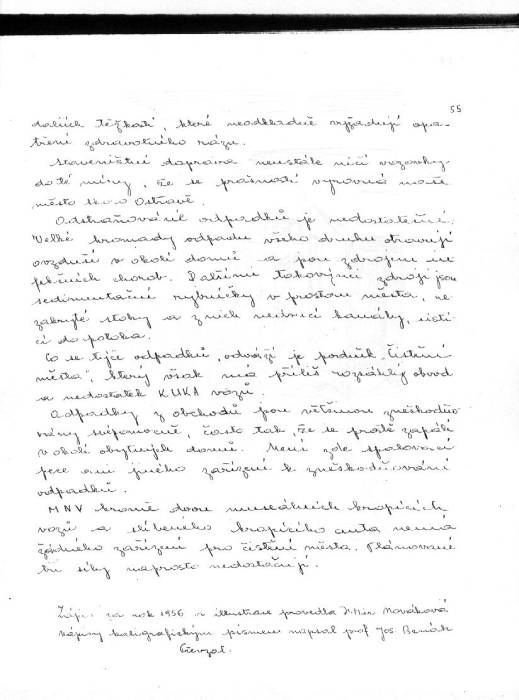 55
dalších těžkostí, které neodkladně vyžadují opa-
tření zdravotního rázu.
Staveništní doprava neustále ničí vozovky
do té míry, že se prašností vyrovná naše
město skoro Ostravě.
Odstraňování odpadků je nedostatečné.
Velké hromady odpadu všeho druhu otravují
ovzduší v okolí domů a jsou zdrojem in
fekčních chorob. Dalšími takovými zdroji jsou
sedimentační rybníčky v prostoru města, ne
zakryté stoky a z nich nedrící kanálky, ústí
cí do potoka.
Co se týče odpadků, odváží je podnik "Čištění
města", který však má příliš rozsáhlý obvod
a nedostatek KUKA vozů.
Odpadky z obchodů jsou většinou zneškodňo
vány svépomocně, často tak, že se prostě zapálí
v okolí obytných domů. Není zde spalovací
pece ani jiného zařízení k zneškodňování
odpadků.
MNV kromě dvou museálních kropicích
vozů a slíbeného kropicího auta nemá
žádného zařízení pro čištění města. Plánované
tři síly naprosto nedostačují.
Zápis za rok 1956 a illustrace provedla Nováková
zápisy kaligrafickým písmem napsal prof. Jos. Benák
Převzal.